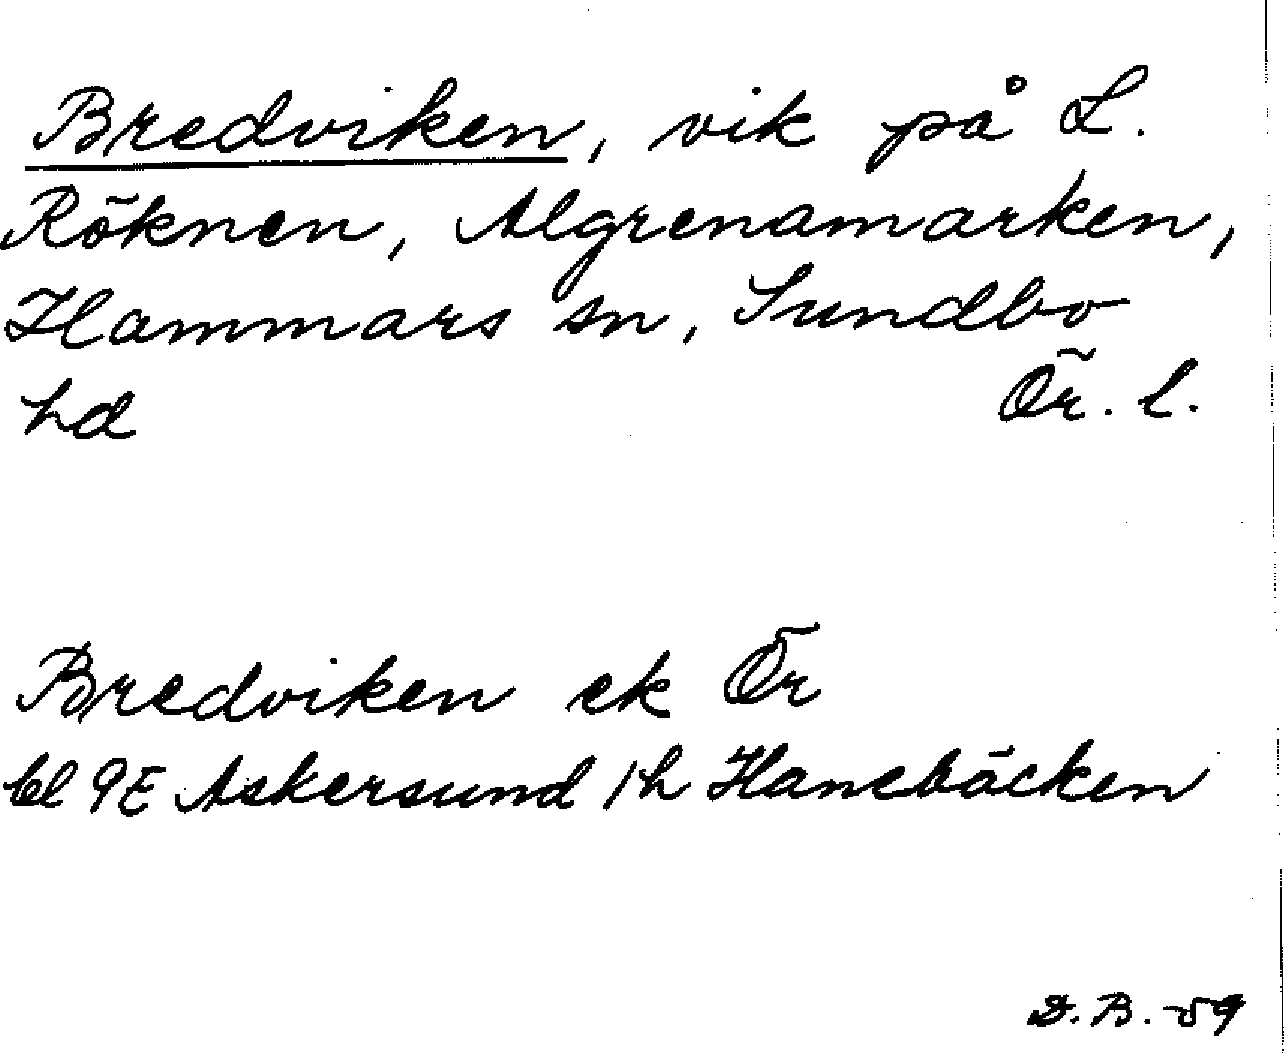 Bredviken, vik på L.
Röknen, Algrenamarken,
Hammars sn, Sundbo
hd Ör. l.
Bredviken ek Ör
bl 9E Askersund /h Hanebäcken
D.B.-59